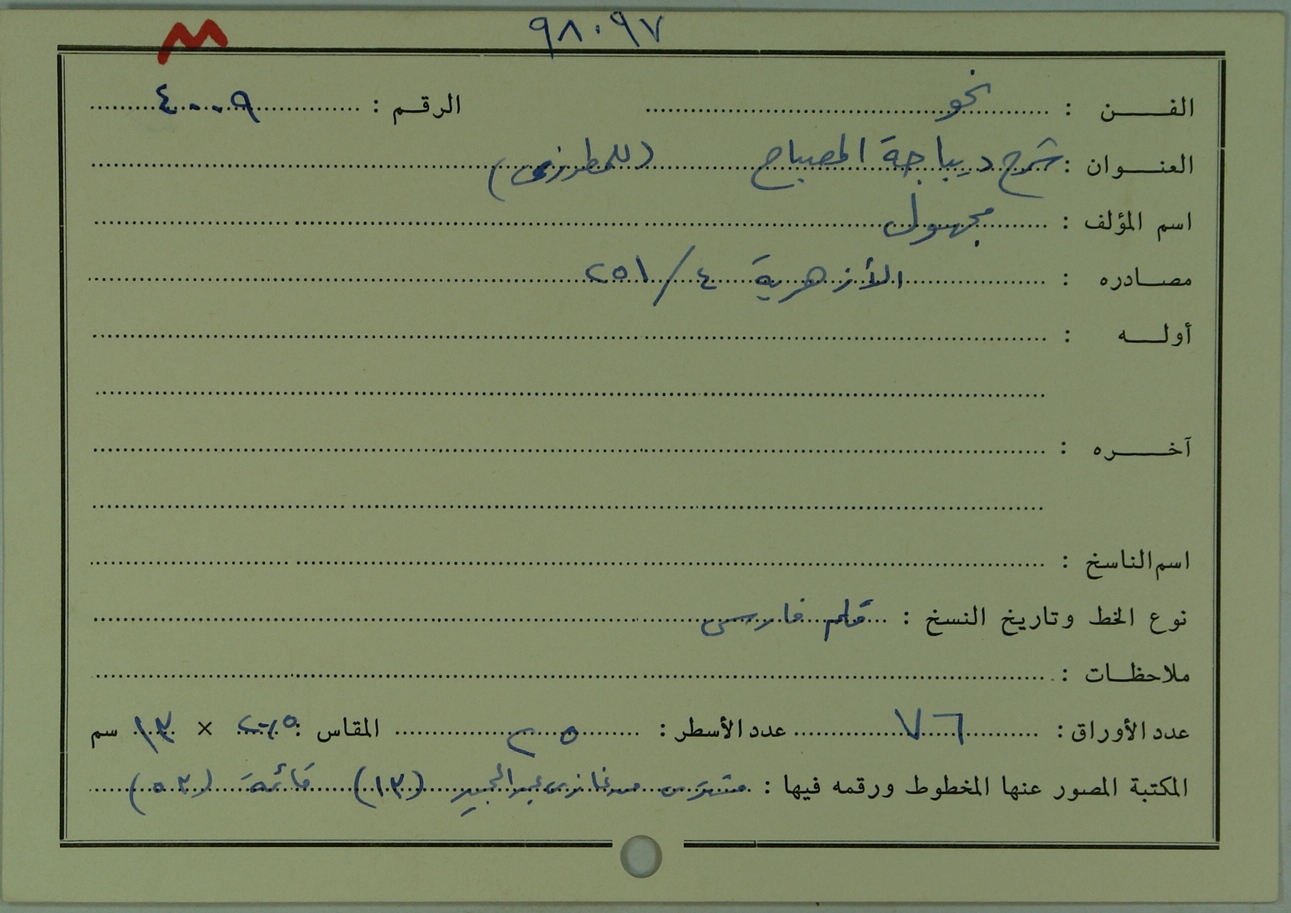 ٩٨٠٩٧
الفن : نحو الرقم : ٤٠٠٩
العنوان : شرح ديباجة المصباح (للمطرزي)
اسم المؤلف : مجهول
مصادره : الأزهرية ٤/٢٥١
أوله :
آخره :
اسم الناسخ :
نوع الخط وتاريخ النسخ : قلم فارسي
ملاحظات :
عدد الأوراق : ٧٦ عدد الأسطر : ٢٥ المقاس : × ١٣ سم
المكتبة المصور عنها المخطوط ورقمه فيها : مشترى من غازي عبد المجيد (١٣) قائمة (٥٣)